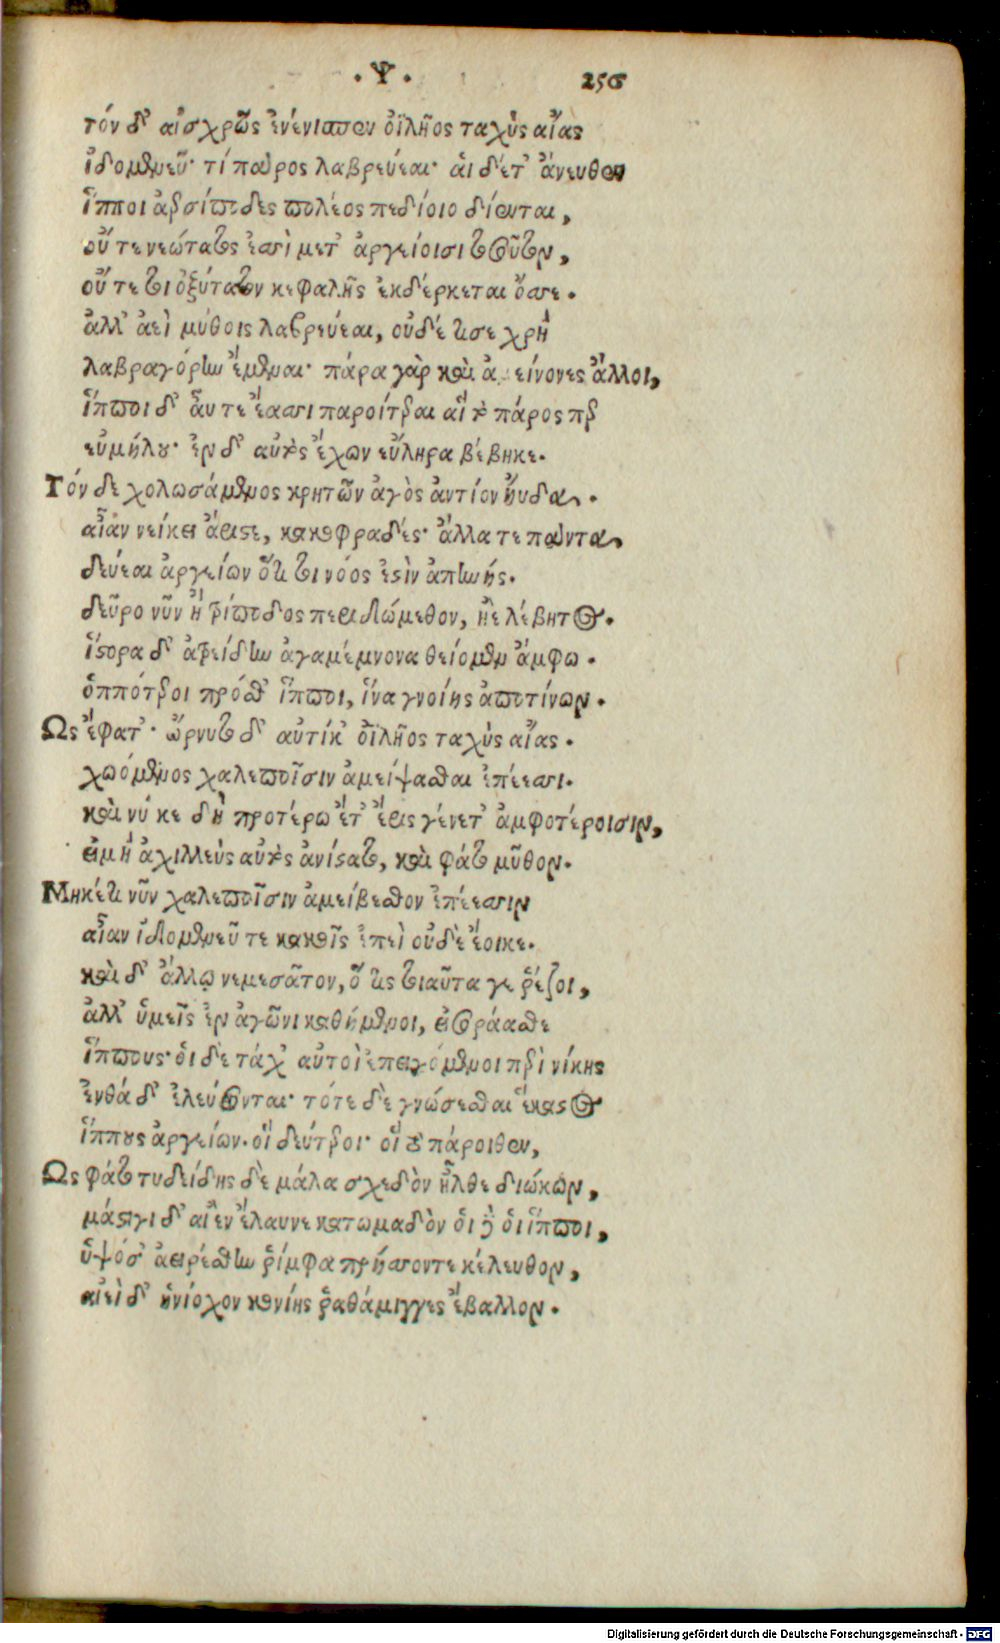 . Ψ . 256
τόν δ' αἰσχρῶς ἐνένισπεν ὀϊλῆος ταχὺς αἴας
ἰδομενεῦ· τί πάρος λαβρεύεαι· ἁι δέτ' ἄνευθεν
ἵπποι ἀερσίποδες πολέος πεδίοιο δίενται,
οὔ τε νεώτατος ἐσσὶ μετ' ἀργείοισι τοσοῦτον,
οὔ τε τοι ὀξύτατον κεφαλῆς ἐκδέρκεται ὄσσε.
ἀλλ' ἀεὶ μύθοις λαβρεύεαι, οὐδέ τι σε χρὴ
λαβραγόρην ἔμεναι· πάρα γὰρ καὶ ἀμείνονες ἄλλοι,
ἵπποι δ' αὖ τε ἔασσι παροίτεραι αἳ τὸ πάρος περ
εὐμήλου· ἐν δ' αὐτὸς ἔχων εὔληρα βέβηκε.
Τόν δε χολωσάμενος κρητῶν ἀγὸς ἀντίον ἤυδα.
αἶαν νείκει ἄριστε, κακοφραδές· ἄλλα τε πάντα,
δεύεαι ἀργείων ὅτι τοι νόος ἐστὶν ἀπηνής.
δεῦρο νῦν ἢ τρίποδος περιδώμεθον, ἠὲ λέβητος.
ἵστορα δ' ἀτρείδην ἀγαμέμνονα θείομεν ἄμφω.
ὁππότεροι πρόσθ' ἵπποι, ἵνα γνοίης ἀποτίνων.
Ως ἔφατ'· ὤρνυτο δ' αὐτίκ' ὀϊλῆος ταχὺς αἴας.
χωόμενος χαλεποῖσιν ἀμείψασθαι ἐπέεσσι.
καὶ νύ κε δὴ προτέρω ἔτ' ἔρις γένετ' ἀμφοτέροισιν,
εἰ μὴ ἀχιλλεὺς αὐτὸς ἀνίστατο, καὶ φάτο μῦθον.
Μηκέτι νῦν χαλεποῖσιν ἀμείβεσθον ἐπέεσσιν
αἶαν ἰδομενεῦ τε κακοῖς ἐπεὶ οὐδὲ ἔοικε.
καὶ δ' ἄλλῳ νεμεσᾶτον, ὅ τις τοιαῦτα γε ῥέζοι,
ἀλλ' ὑμεῖς ἐν ἀγῶνι καθήμενοι, εἰσοράασθε
ἵππους· ὁι δὲ τάχ' αὐτοὶ ἐπειγόμενοι περὶ νίκης
ἐνθάδ' ἐλεύσονται· τότε δὲ γνώσεσθαι ἕκαστος
ἵππους ἀργείων. οἳ δεύτεροι· οἵ τε πάροιθεν,
Ως φάτο τυδείδης δὲ μάλα σχεδὸν ἦλθε διώκων,
μάστιγι δ' αἰὲν ἔλαυνε κατωμαδὸν ὁι δὲ ὁι ἵπποι,
ὑψόσ' ἀειρέσθην ῥίμφα πρήσσοντε κέλευθον,
αἰεὶ δ' ἡνίοχον κονίης ῥαθάμιγγες ἔβαλλον.
Digitalisierung gefördert durch die Deutsche Forschungsgemeinschaft - DFG